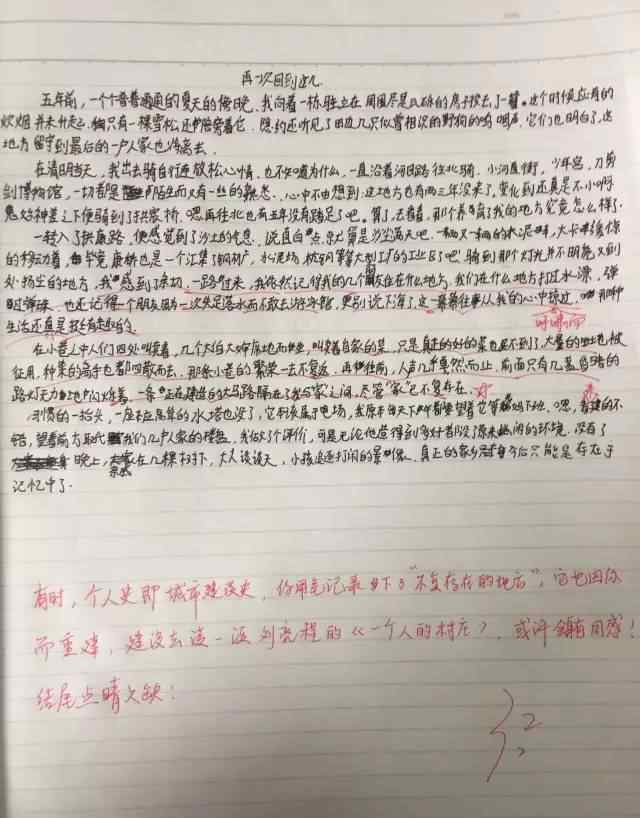 再一次回到这儿
五年前，一个个普普通通的夏天的傍晚，我向着一栋独立在周围尽是瓦砾的房子投去了一瞥。这个时候应有的
炊烟并未升起，只有一棵雪松还伴着它。隐约还听见了田边几只似曾相识的野狗的呜咽声，它们也明白了，这
地方留守到最后的一户人家也将离去。
在清明当天，我出去骑自行车放松心情，也不知道为什么，一直沿着河田路往北骑，小河直街，少年宫，刀剪
剑博物馆，一切都是陌生而又有一丝的熟悉，心中不由想到：这地方也有两三年没来了，变化到还真是不小啊
鬼始神差之下便骑到了拱宸桥，嗯再往北也有五年没有踏足了吧，算了，去看看，那个养育了我的地方究竟怎么样了
一转入了拱康路，便感觉到了沙土的气息，说直白点，就算是沙尘满天吧，一辆又一辆的水泥，大卡缓慢
的移动着，毕竟康桥也是一个汇集了钢材厂，水泥场，杭钢等大型工厂的工业区了吧！骑到那个灯光并不明亮又到
处扬尘的地方，我感到了亲切，一路骑来，我依然记得我的几个朋友住在什么地方，我们在什么地方打过水漂，弹
过弹珠，也还记得一个朋友因为一次失足落水而不敢去游泳馆，更别说下海了，这一幕幕往事从我的心中掠过，那种
生活还真是挺有趣的。
在小巷之中人们四处叫卖着，几个大伯大妈席地而坐，叫卖着自家的菜，只是真正的好的菜也见不到了，大量的田地被
征用，种菜的高手也都四散而去，那条小巷的繁荣一去不复返，再往前，人声几乎戛然而止，前面只有几盏昏暗的
路灯无力地闪烁着，一条正在建造的大马路隔在了我与家之间，尽管"家"已不复存在。
习惯的一抬头，一座本应吊耸的水塔也没了，它本隶属于电场，我原本每天下午都要望着它等妈妈下班，嗯，看建的不
错，望着前方取代我们几户人家的楼盘，我做了个评价，可是无论他造得到多好都没了原来幽闲的环境，没有了
晚上，大家在几棵树下，大人谈谈天，小孩追逐打闹的景像，真正的家乡今后只能是存在于
记忆中了。
有时，个人史即城市建设史，你用笔记录下了"不复存在的地方"，它也因你
而重建，建议去读一读刘亮程的《一个人的村庄》，或许会有同感！
结尾点睛欠缺！